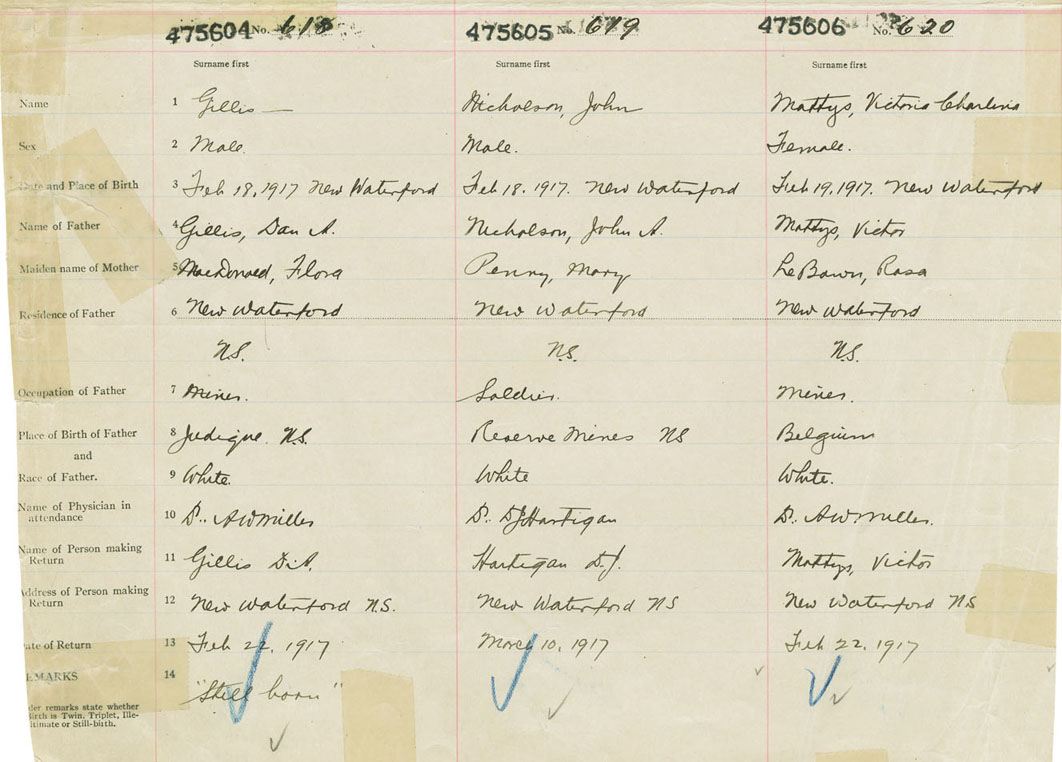 475604 No. 618 475605 No. 619 475606 No. 620
Surname first Surname first Surname first
Name 1 Gillis — Nicholson, John Mattys, Victoria Charlina
Sex 2 Male. Male. Female.
Date and Place of Birth 3 Feb 18, 1917 New Waterford Feb 18. 1917. New Waterford Feb 19, 1917. New Waterford
Name of Father 4 Gillis, Dan A. Nicholson, John A. Mattys, Victor
Maiden name of Mother 5 MacDonald, Flora Penny, Mary LeBawn, Rosa
Residence of Father 6 New Waterford New Waterford New Waterford
N.S. N.S. N.S.
Occupation of Father 7 Miner. Soldier. Miner.
Place of Birth of Father 8 Judique N.S. Reserve Mines NS Belgium
and
Race of Father. 9 White. White White.
Name of Physician in
attendance 10 Dr. AW Miller Dr. DJ Hartigan Dr. AW Miller.
Name of Person making
Return 11 Gillis D.A. Hartigan D.J. Mattys, Victor
Address of Person making
Return 12 New Waterford N.S. New Waterford NS New Waterford NS
ate of Return 13 Feb 22, 1917 March 10, 1917 Feb 22, 1917
EMARKS 14
"Still born"
der remarks state whether
irth is Twin, Triplet, Ille-
itimate or Still-birth.